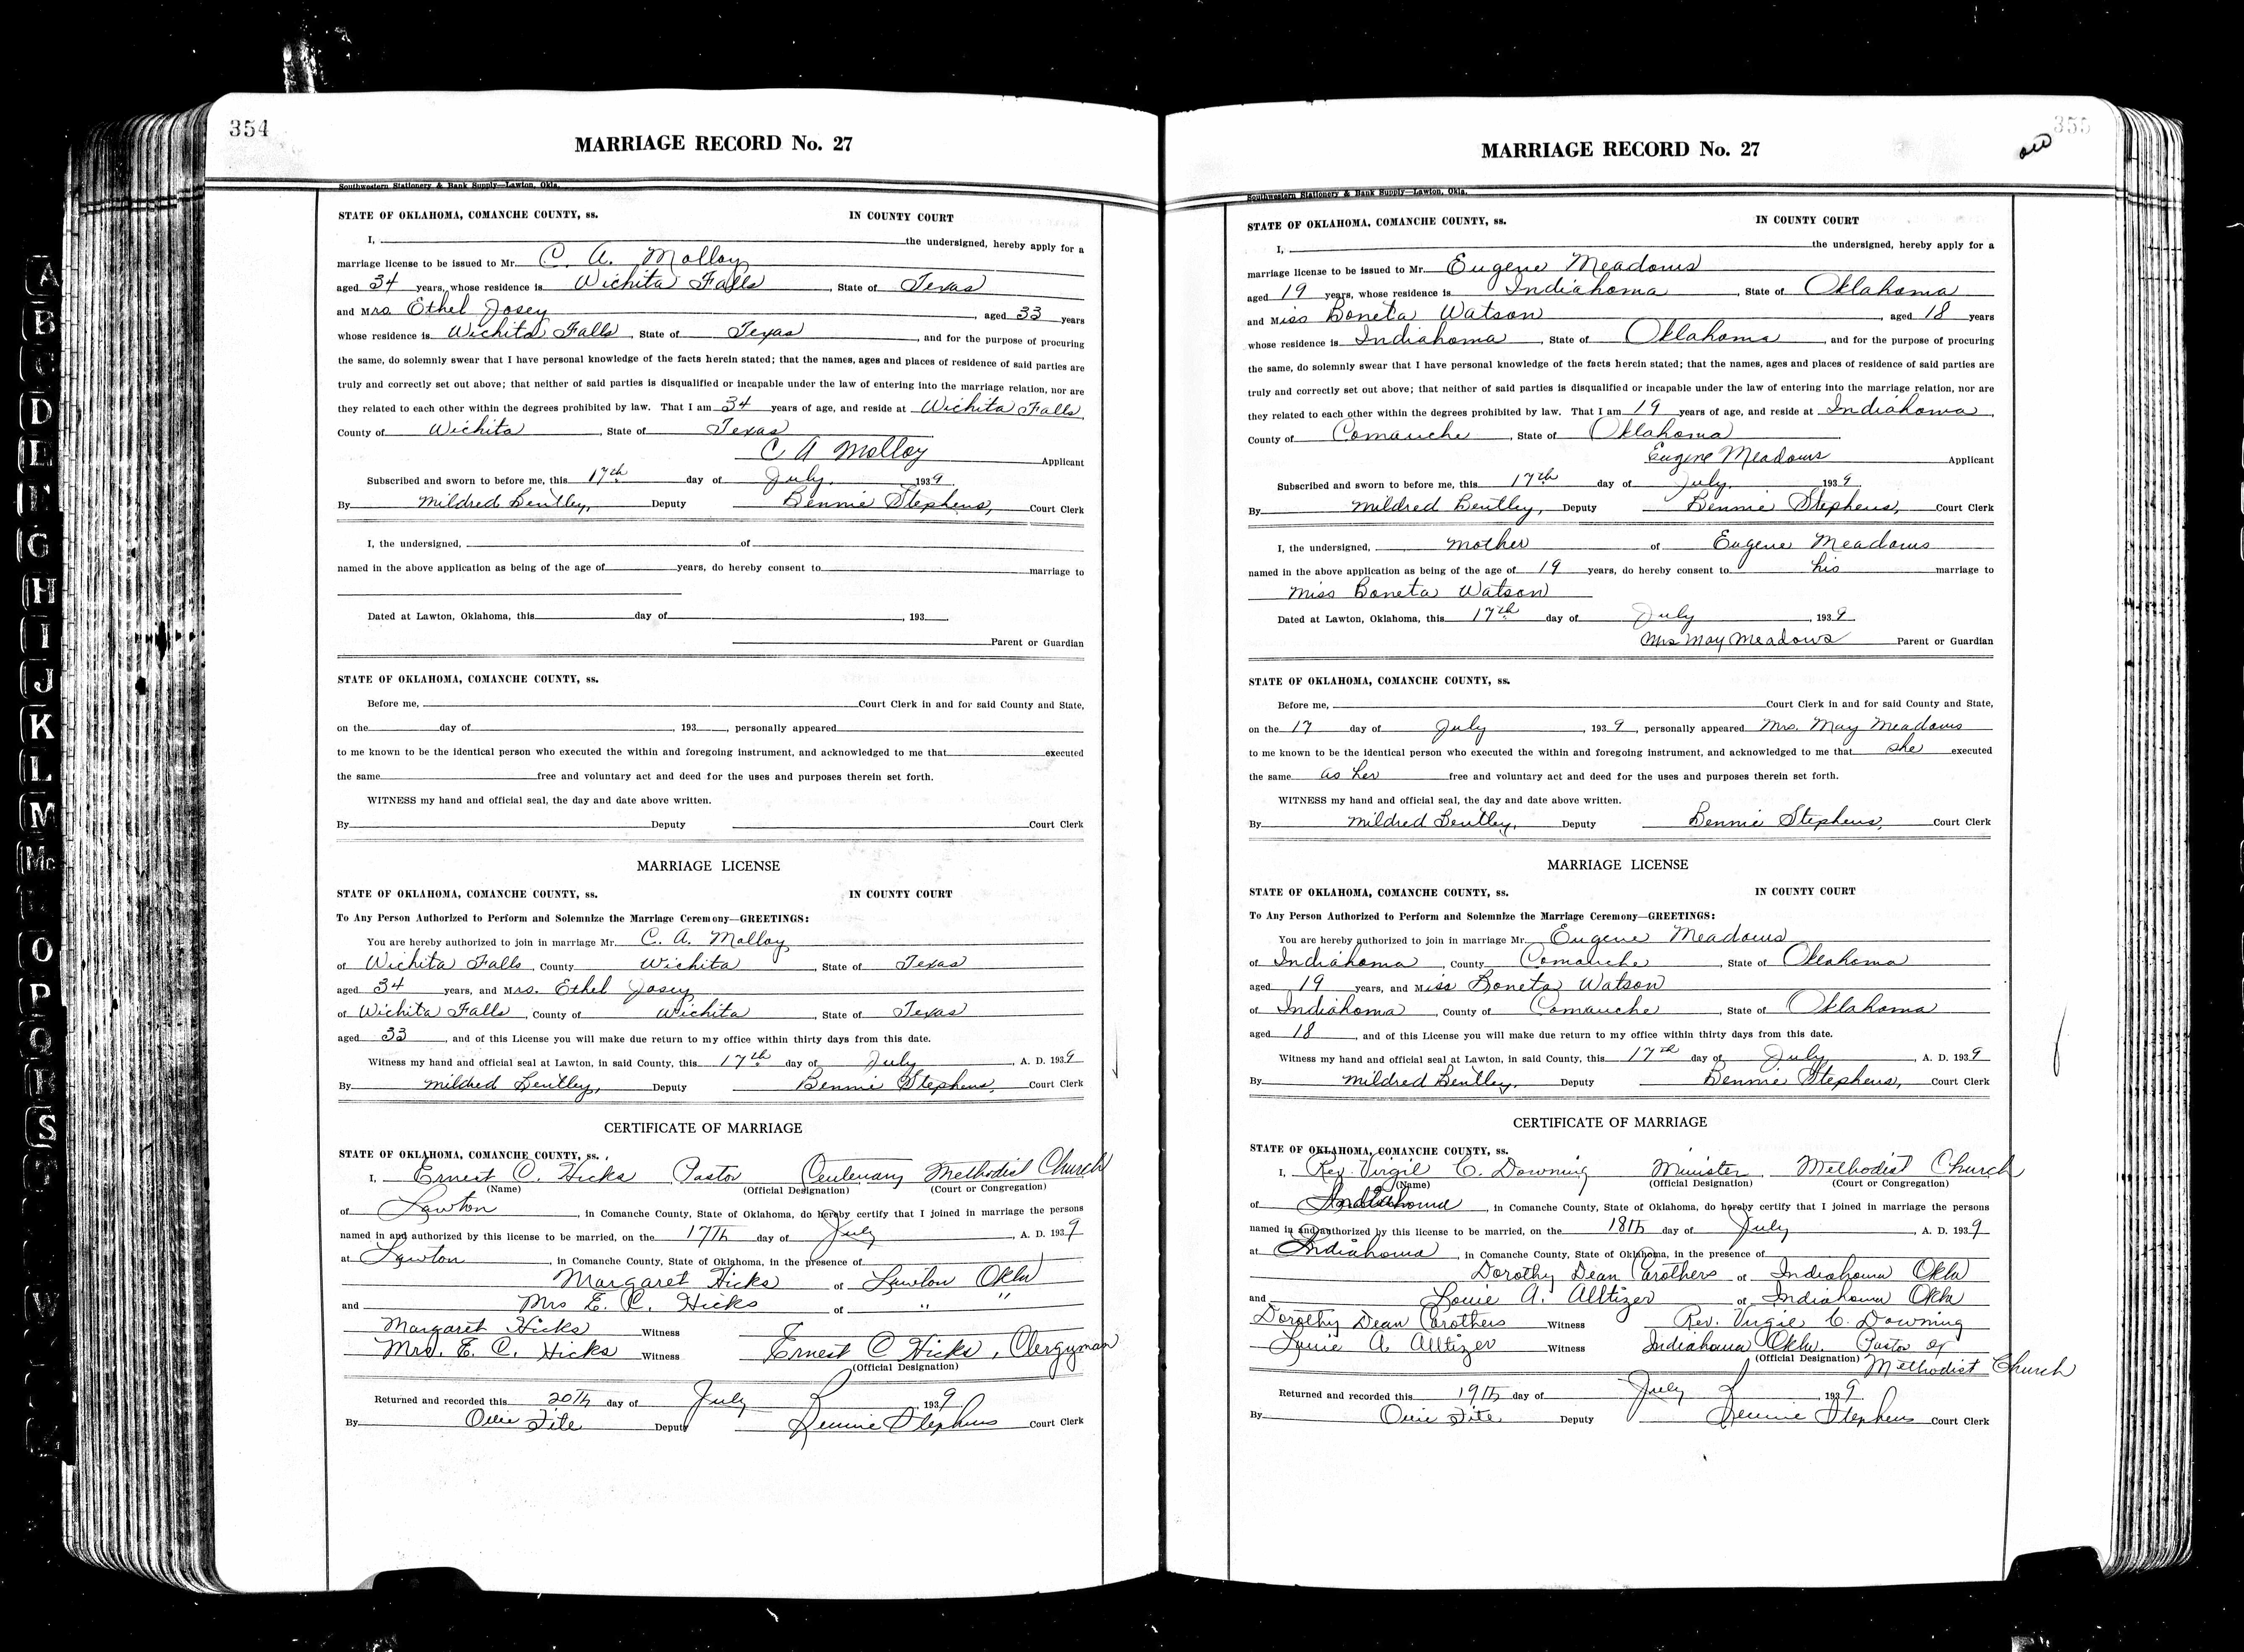 354
MARRIAGE RECORD No. 27
Southwestern Stationery & Bank Supply—Lawton, Okla.
STATE OF OKLAHOMA, COMANCHE COUNTY, ss. IN COUNTY COURT
I, the undersigned, hereby apply for a
marriage license to be issued to Mr. C. A. Molloy
aged 34 years, whose residence is Wichita Falls, State of Texas
and Mrs. Ethel Josey, aged 33 years
whose residence is Wichita Falls, State of Texas, and for the purpose of procuring
the same, do solemnly swear that I have personal knowledge of the facts herein stated; that the names, ages and places of residence of said parties are
truly and correctly set out above; that neither of said parties is disqualified or incapable under the law of entering into the marriage relation, nor are
they related to each other within the degrees prohibited by law. That I am 34 years of age, and reside at Wichita Falls,
County of Wichita, State of Texas
C A Molloy Applicant
Subscribed and sworn to before me, this 17th day of July, 1939.
By Mildred Bentley, Deputy Bennie Stephens, Court Clerk
I, the undersigned, of
named in the above application as being of the age of years, do hereby consent to marriage to
Dated at Lawton, Oklahoma, this day of , 193 .
Parent or Guardian
STATE OF OKLAHOMA, COMANCHE COUNTY, ss.
Before me, Court Clerk in and for said County and State,
on the day of , 193 , personally appeared
to me known to be the identical person who executed the within and foregoing instrument, and acknowledged to me that executed
the same free and voluntary act and deed for the uses and purposes therein set forth.
WITNESS my hand and official seal, the day and date above written.
By Deputy Court Clerk
MARRIAGE LICENSE
STATE OF OKLAHOMA, COMANCHE COUNTY, ss. IN COUNTY COURT
To Any Person Authorized to Perform and Solemnize the Marriage Ceremony—GREETINGS:
You are hereby authorized to join in marriage Mr. C. A. Molloy
of Wichita Falls, County Wichita, State of Texas
aged 34 years, and Mrs. Ethel Josey
of Wichita Falls, County of Wichita, State of Texas
aged 33, and of this License you will make due return to my office within thirty days from this date.
Witness my hand and official seal at Lawton, in said County, this 17th day of July, A. D. 1939
By Mildred Bentley, Deputy Bennie Stephens, Court Clerk
CERTIFICATE OF MARRIAGE
STATE OF OKLAHOMA, COMANCHE COUNTY, ss.
I, Ernest C. Hicks Pastor Centenary Methodist Church
(Name) (Official Designation) (Court or Congregation)
of Lawton, in Comanche County, State of Oklahoma, do hereby certify that I joined in marriage the persons
named in and authorized by this license to be married, on the 17th day of July, A. D. 1939
at Lawton, in Comanche County, State of Oklahoma, in the presence of
Margaret Hicks of Lawton Okla
and Mrs E. C. Hicks of " "
Margaret Hicks Witness
Mrs. E. C. Hicks Witness Ernest C Hicks, Clergyman
(Official Designation)
Returned and recorded this 20th day of July, 1939
By Ollie Fite Deputy Bennie Stephens Court Clerk
355
MARRIAGE RECORD No. 27
Southwestern Stationery & Bank Supply—Lawton, Okla.
STATE OF OKLAHOMA, COMANCHE COUNTY, ss. IN COUNTY COURT
I, the undersigned, hereby apply for a
marriage license to be issued to Mr. Eugene Meadows
aged 19 years, whose residence is Indiahoma, State of Oklahoma
and Miss Boneta Watson, aged 18 years
whose residence is Indiahoma, State of Oklahoma, and for the purpose of procuring
the same, do solemnly swear that I have personal knowledge of the facts herein stated; that the names, ages and places of residence of said parties are
truly and correctly set out above; that neither of said parties is disqualified or incapable under the law of entering into the marriage relation, nor are
they related to each other within the degrees prohibited by law. That I am 19 years of age, and reside at Indiahoma,
County of Comanche, State of Oklahoma.
Eugene Meadows Applicant
Subscribed and sworn to before me, this 17th day of July, 1939.
By Mildred Bentley, Deputy Bennie Stephens, Court Clerk
I, the undersigned, mother of Eugene Meadows
named in the above application as being of the age of 19 years, do hereby consent to his marriage to
Miss Boneta Watson
Dated at Lawton, Oklahoma, this 17th day of July, 1939.
Mrs May Meadows Parent or Guardian
STATE OF OKLAHOMA, COMANCHE COUNTY, ss.
Before me, Court Clerk in and for said County and State,
on the 17 day of July, 1939, personally appeared Mrs. May Meadows
to me known to be the identical person who executed the within and foregoing instrument, and acknowledged to me that she executed
the same as her free and voluntary act and deed for the uses and purposes therein set forth.
WITNESS my hand and official seal, the day and date above written.
By Mildred Bentley, Deputy Bennie Stephens, Court Clerk
MARRIAGE LICENSE
STATE OF OKLAHOMA, COMANCHE COUNTY, ss. IN COUNTY COURT
To Any Person Authorized to Perform and Solemnize the Marriage Ceremony—GREETINGS:
You are hereby authorized to join in marriage Mr. Eugene Meadows
of Indiahoma, County Comanche, State of Oklahoma
aged 19 years, and Miss Boneta Watson
of Indiahoma, County of Comanche, State of Oklahoma
aged 18, and of this License you will make due return to my office within thirty days from this date.
Witness my hand and official seal at Lawton, in said County, this 17th day of July, A. D. 1939
By Mildred Bentley, Deputy Bennie Stephens, Court Clerk
CERTIFICATE OF MARRIAGE
STATE OF OKLAHOMA, COMANCHE COUNTY, ss.
I, Rev. Virgil C. Downing Minister Methodist Church
(Name) (Official Designation) (Court or Congregation)
of Indiahoma, in Comanche County, State of Oklahoma, do hereby certify that I joined in marriage the persons
named in and authorized by this license to be married, on the 18th day of July, A. D. 1939
at Indiahoma, in Comanche County, State of Oklahoma, in the presence of
Dorothy Dean Carothers of Indiahoma Okla
and Louie A. Alltizer of Indiahoma Okla
Dorothy Dean Carothers Witness Rev. Virgie C. Downing
Louie A. Alltizer Witness Indiahoma Okla. Pastor of
(Official Designation) Methodist Church
Returned and recorded this 19th day of July, 1939
By Ollie Fite Deputy Bennie Stephens Court Clerk
A
B
C
D
E
F
G
H
I
J
K
L
M
Mc
O
P
Q
R
S
T
W